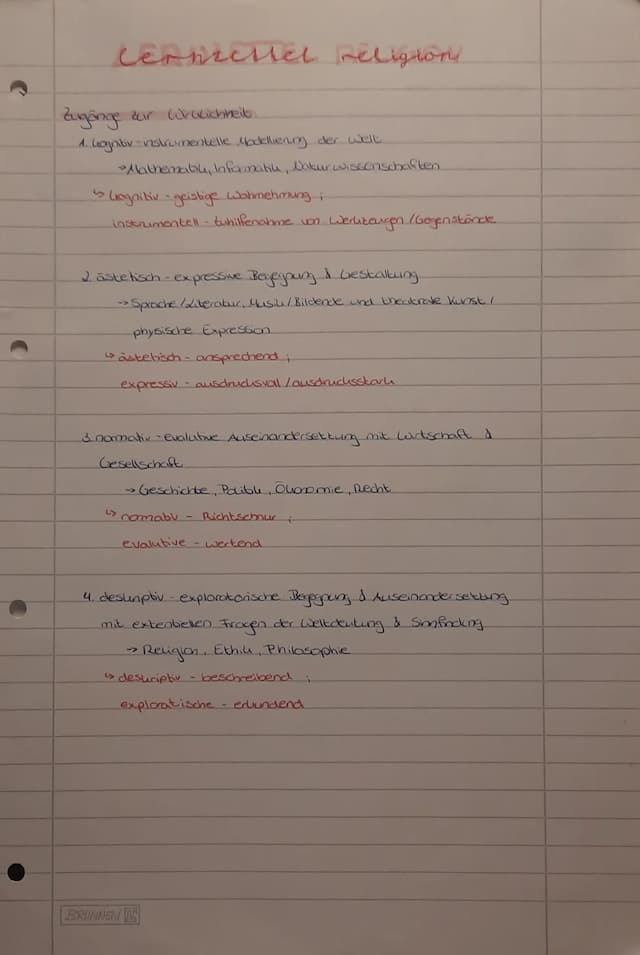 LERNZETTEL RELIGION
Zugänge zur Wirklichkeit:
1. kognitiv-instrumentelle Modellierung der Welt
→ Mathematik, Informatik, Naturwissenschaften
↳ kognitiv - geistige Wahrnehmung ;
instrumentell - zuhilfenahme von Werkzeugen / Gegenstände
2. ästetisch - expressive Begegnung & Gestaltung
→ Sprache / Literatur, Musik / Bildende und theatrale Kunst /
physische Expression
↳ ästetisch - ansprechend ;
expressiv - ausdrucksvoll / ausdrucksstark
3. normativ - evalutive Auseinandersetzung mit Wirtschaft &
Gesellschaft
→ Geschichte, Politik, Ökonomie, Recht
↳ normativ - Richtschnur ;
evalutive - wertend
4. deskriptiv - exploratorische Begegnung & Auseinandersetzung
mit extentiellen Fragen der Weltdeutung & Sinnfindung
→ Religion, Ethik, Philosophie
↳ deskriptiv - beschreibend ;
exploratische - erkundend
BRUNNEN